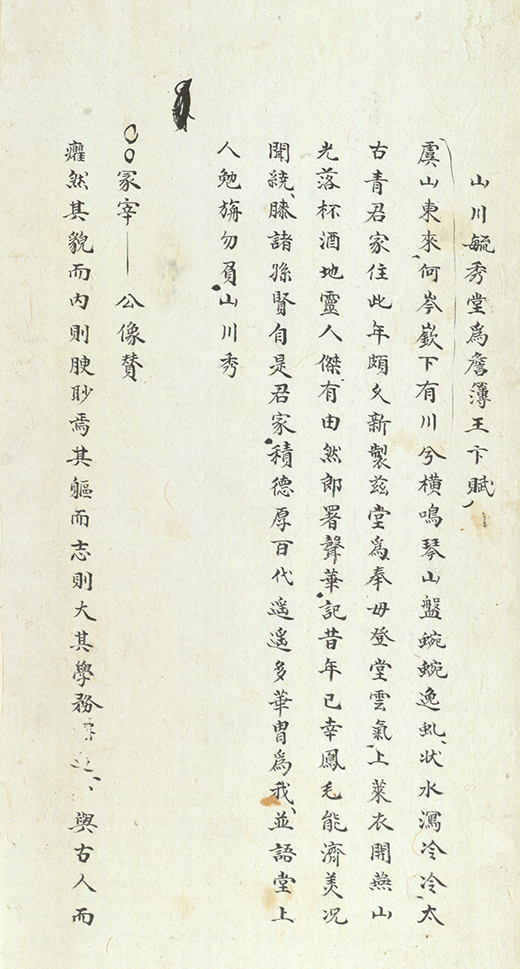 山川毓秀堂為詹簿王卞賦
虞山東來何岑嶔下有川兮橫鳴琴山盤蜿蜿逸虬狀水瀉冷冷太
古青君家住此年頗久新製茲堂為奉毋登堂雲氣上萊衣開燕山
光落杯酒地靈人傑有由然郎署聲華記昔年已幸鳳毛能濟美况
聞繞膝諸孫賢自是君家積德厚百代遥遥多華胄為我並語堂上
人勉旃勿負山川秀
冡宰公像贊
癯然其貌而內則腴眇焉其軀而志則大其學務與古人而